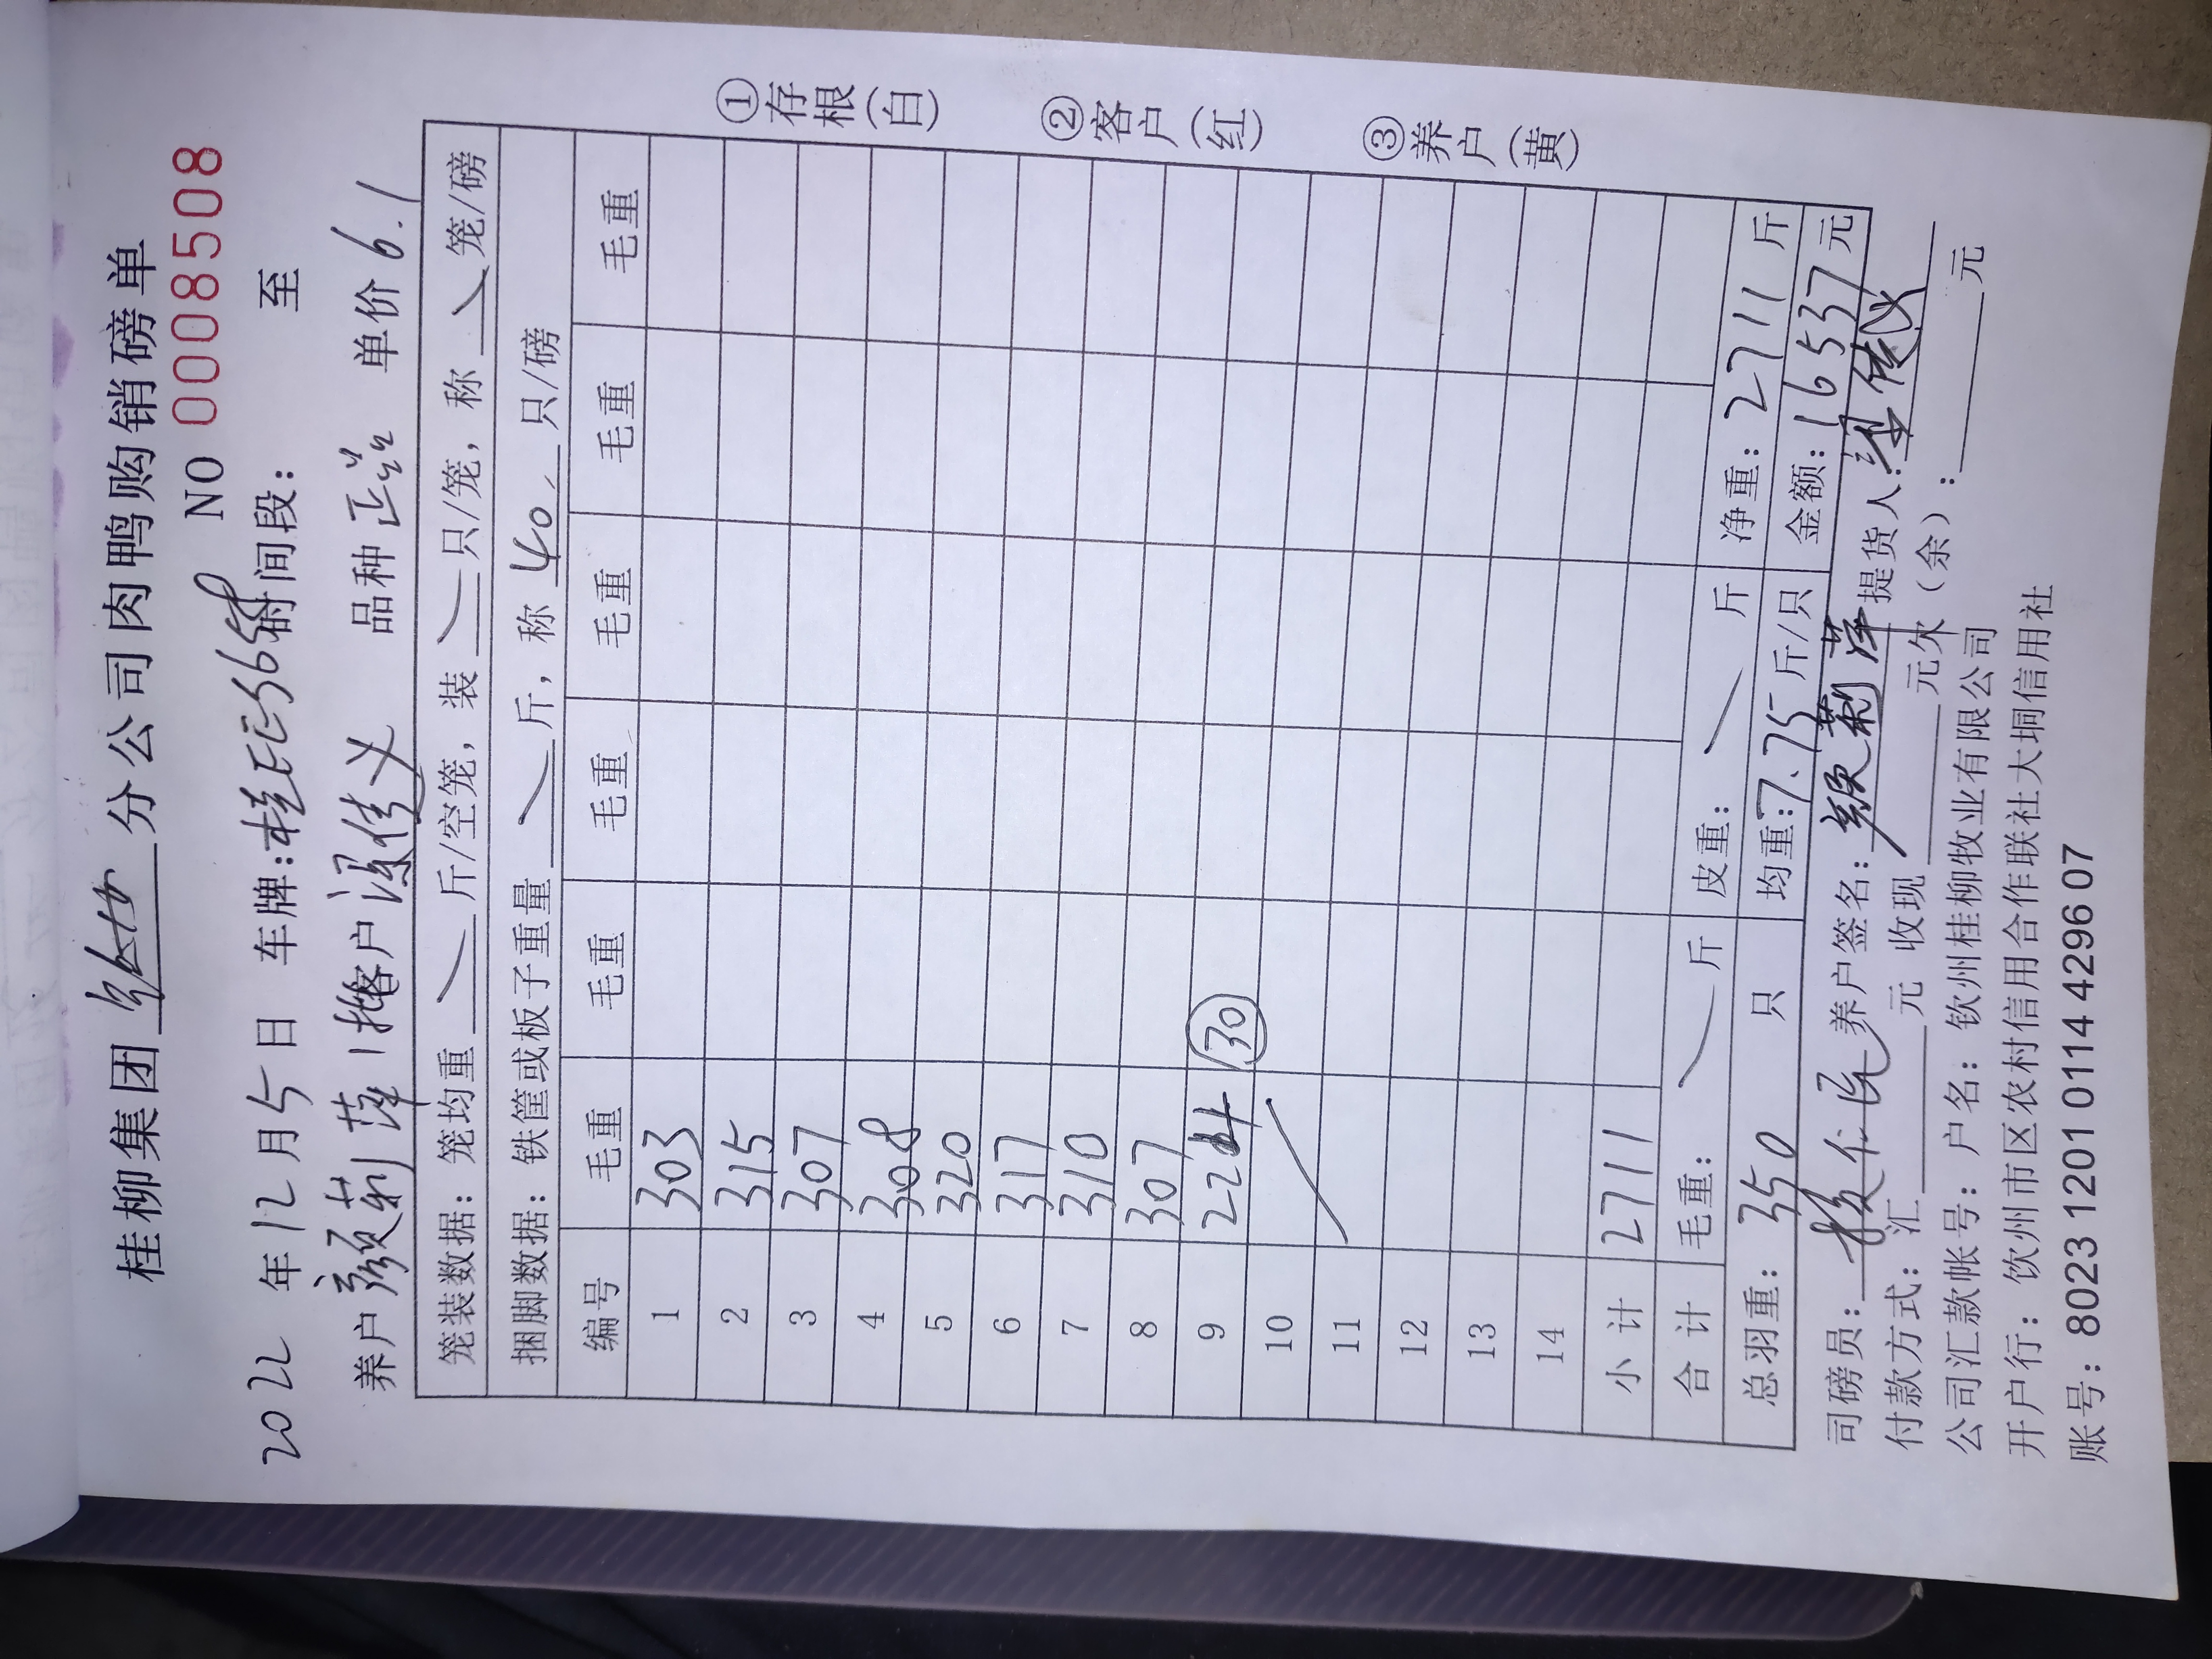 桂柳集团 分公司肉鸭购销磅单
NO 0008508
2022 年 12 月 5 日 车牌:桂E 时间段: 至
养户 莉萍 客户 传义 品种 正品 单价 6.1
笼装数据: 笼均重 斤/空笼, 装 只/笼, 称 笼/磅
捆脚数据: 铁筐或板子重量 斤, 称 40 只/磅
编号 毛重 毛重 毛重 毛重 毛重 毛重
1 303
2 315
3 307
4 308
5 320
6 317
7 310
8 307
9 224 30
10
11
12
13
14
小 计 2711
合 计 毛重: 斤 皮重: 斤 净重: 2711 斤
总羽重: 350 只 均重: 7.75 斤/只 金额: 16537 元
司磅员: 养户签名: 莉萍 提货人: 传义
付款方式: 汇 元 收现 元欠(余): 元
公司汇款帐号: 户名: 钦州桂柳牧业有限公司
开户行: 钦州市区农村信用合作联社大垌信用社
账号: 8023 1201 0114 4296 07
①存根(白)
②客户(红)
③养户(黄)